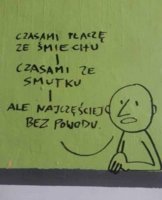 CZASAMI PŁACZĘ
ZE ŚMIECHU
I
CZASAMI ZE
SMUTKU
I
ALE NAJCZĘŚCIEJ
BEZ POWODU.